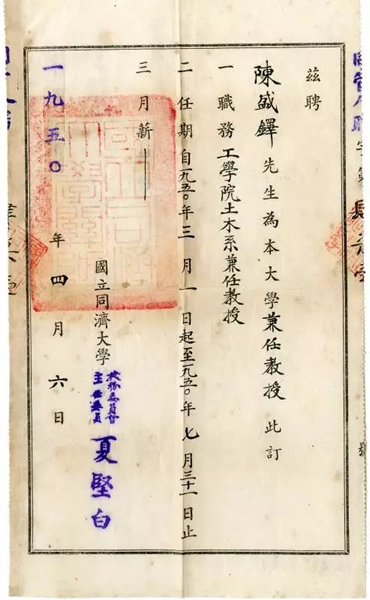 茲聘
陳盛鐸先生為本大學兼任教授此訂
一 職務 工學院土木系兼任教授
二 任期自一九五〇年三月一日起至一九五〇年七月三十一日止
三 月薪
國立同濟大學
校務委員會
主任委員 夏堅白
一九五〇年四月六日